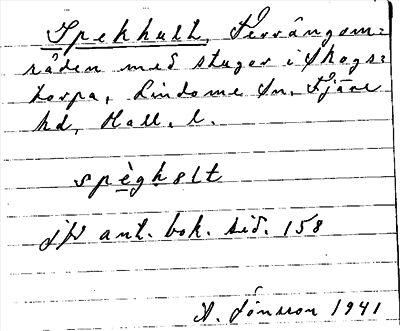 Spekhult, Terrängom=
råden med stugor i Skogs=
torpa, Lindome sn, Fjäre
hd, Hall. l.
spèghslt
JW ant. bok. sid. 158
A. Jönsson 1941